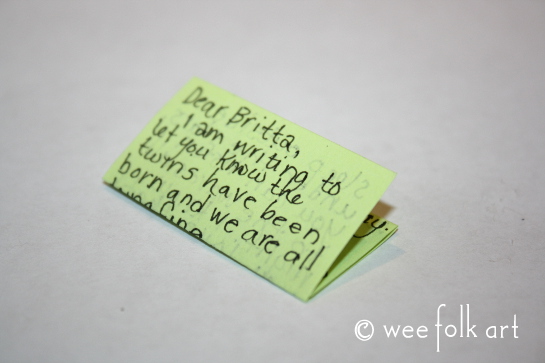 Dear Britta,
I am writing to
let you know the
twins have been
born and we are all
© wee folk art